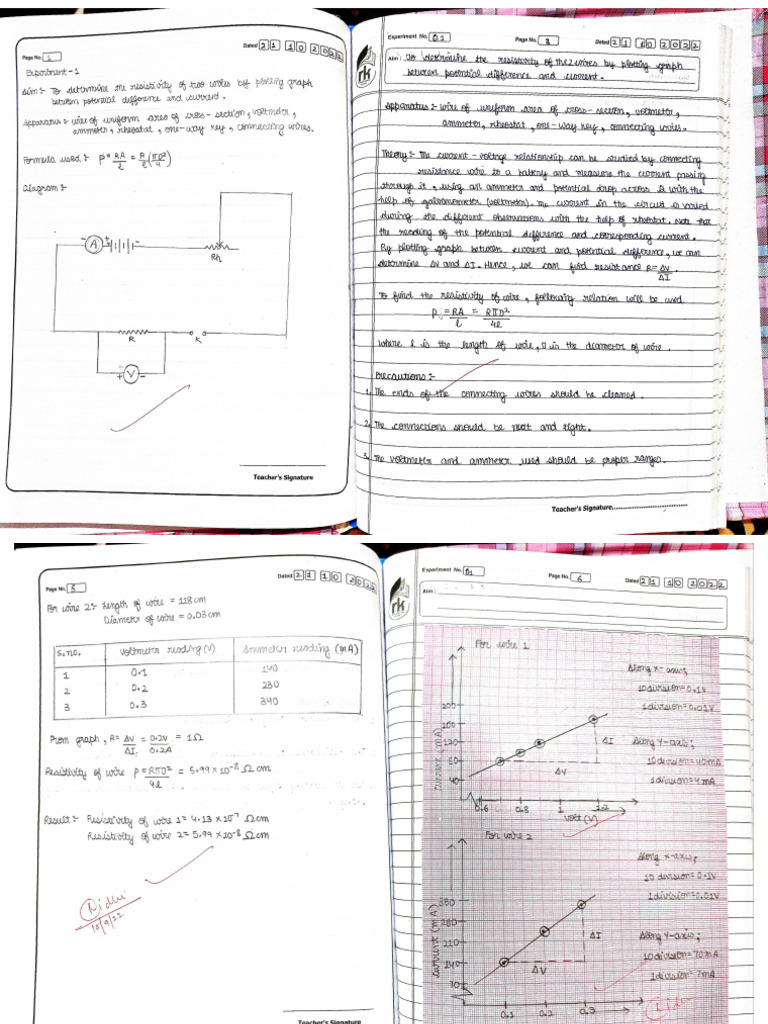 Page No. 1
Dated 21 10 2022
Experiment - 1
Aim :- To determine the resistivity of two wires by plotting graph
between potential difference and current.
Apparatus :- wire of uniform area of cross-section, voltmeter,
ammeter, rheostat, one-way key, connecting wires.
Formula used :- ρ = RA/l = R/l (πD²/4)
Diagram :-
- A +
Rh
R
K
+ V -
Teacher's Signature
Experiment No. 01
Page No. 3
Dated 21 10 2022
Aim : To determine the resistivity of the 2 wires by plotting graph
between potential difference and current.
rk
Apparatus :- wire of uniform area of cross-section, voltmeter,
ammeter, rheostat, one-way key, connecting wires.
Theory :- The current-voltage relationship can be studied by connecting
resistance wire to a battery and measure the current passing
through it, using an ammeter and potential drop across is with the
help of galvanometer (voltmeter). The current in the circuit is varied
during the different observations with the help of rheostat. Note that
the reading of the potential difference and corresponding current.
By plotting graph between current and potential difference, we can
determine ΔV and ΔI. Hence, we can find resistance R = ΔV/ΔI.
To find the resistivity of wire, following relation will be used.
ρ = RA/l = RπD²/4l
where l is the length of wire, D is the diameter of wire.
Precautions :-
1. The ends of the connecting wires should be cleaned.
2. The connections should be neat and tight.
3. The voltmeter and ammeter used should be proper ranges.
Teacher's Signature
Page No. 5
Dated 21 10 2022
For wire 2 :- Length of wire = 118 cm
Diameter of wire = 0.03 cm
S.no. Voltmeter reading (V) Ammeter reading (mA)
1 0.1 140
2 0.2 230
3 0.3 340
From graph, R = ΔV/ΔI = 0.2V/0.2A = 1Ω
Resistivity of wire ρ = RπD²/4l = 5.99 × 10⁻⁸ Ω cm
Result :- Resistivity of wire 1 = 4.13 × 10⁻⁷ Ω cm
Resistivity of wire 2 = 5.94 × 10⁻⁸ Ω cm
Nidhi
10/9/22
Teacher's Signature
Experiment No. 01
Page No. 6
Dated 21 10 2022
Aim :
rk
For wire 1
Along x-axis;
10 division = 0.1V
1 division = 0.01V
Along Y-axis;
10 division = 40 mA
1 division = 4 mA
200
160
120
80
40
current (mA)
ΔI
ΔV
0.6 0.8 1 1.2
volt (V)
For wire 2
Along x-axis;
10 division = 0.1V
1 division = 0.01V
Along Y-axis;
10 division = 70 mA
1 division = 7 mA
350
280
210
140
70
current (mA)
ΔI
ΔV
0.1 0.2 0.3